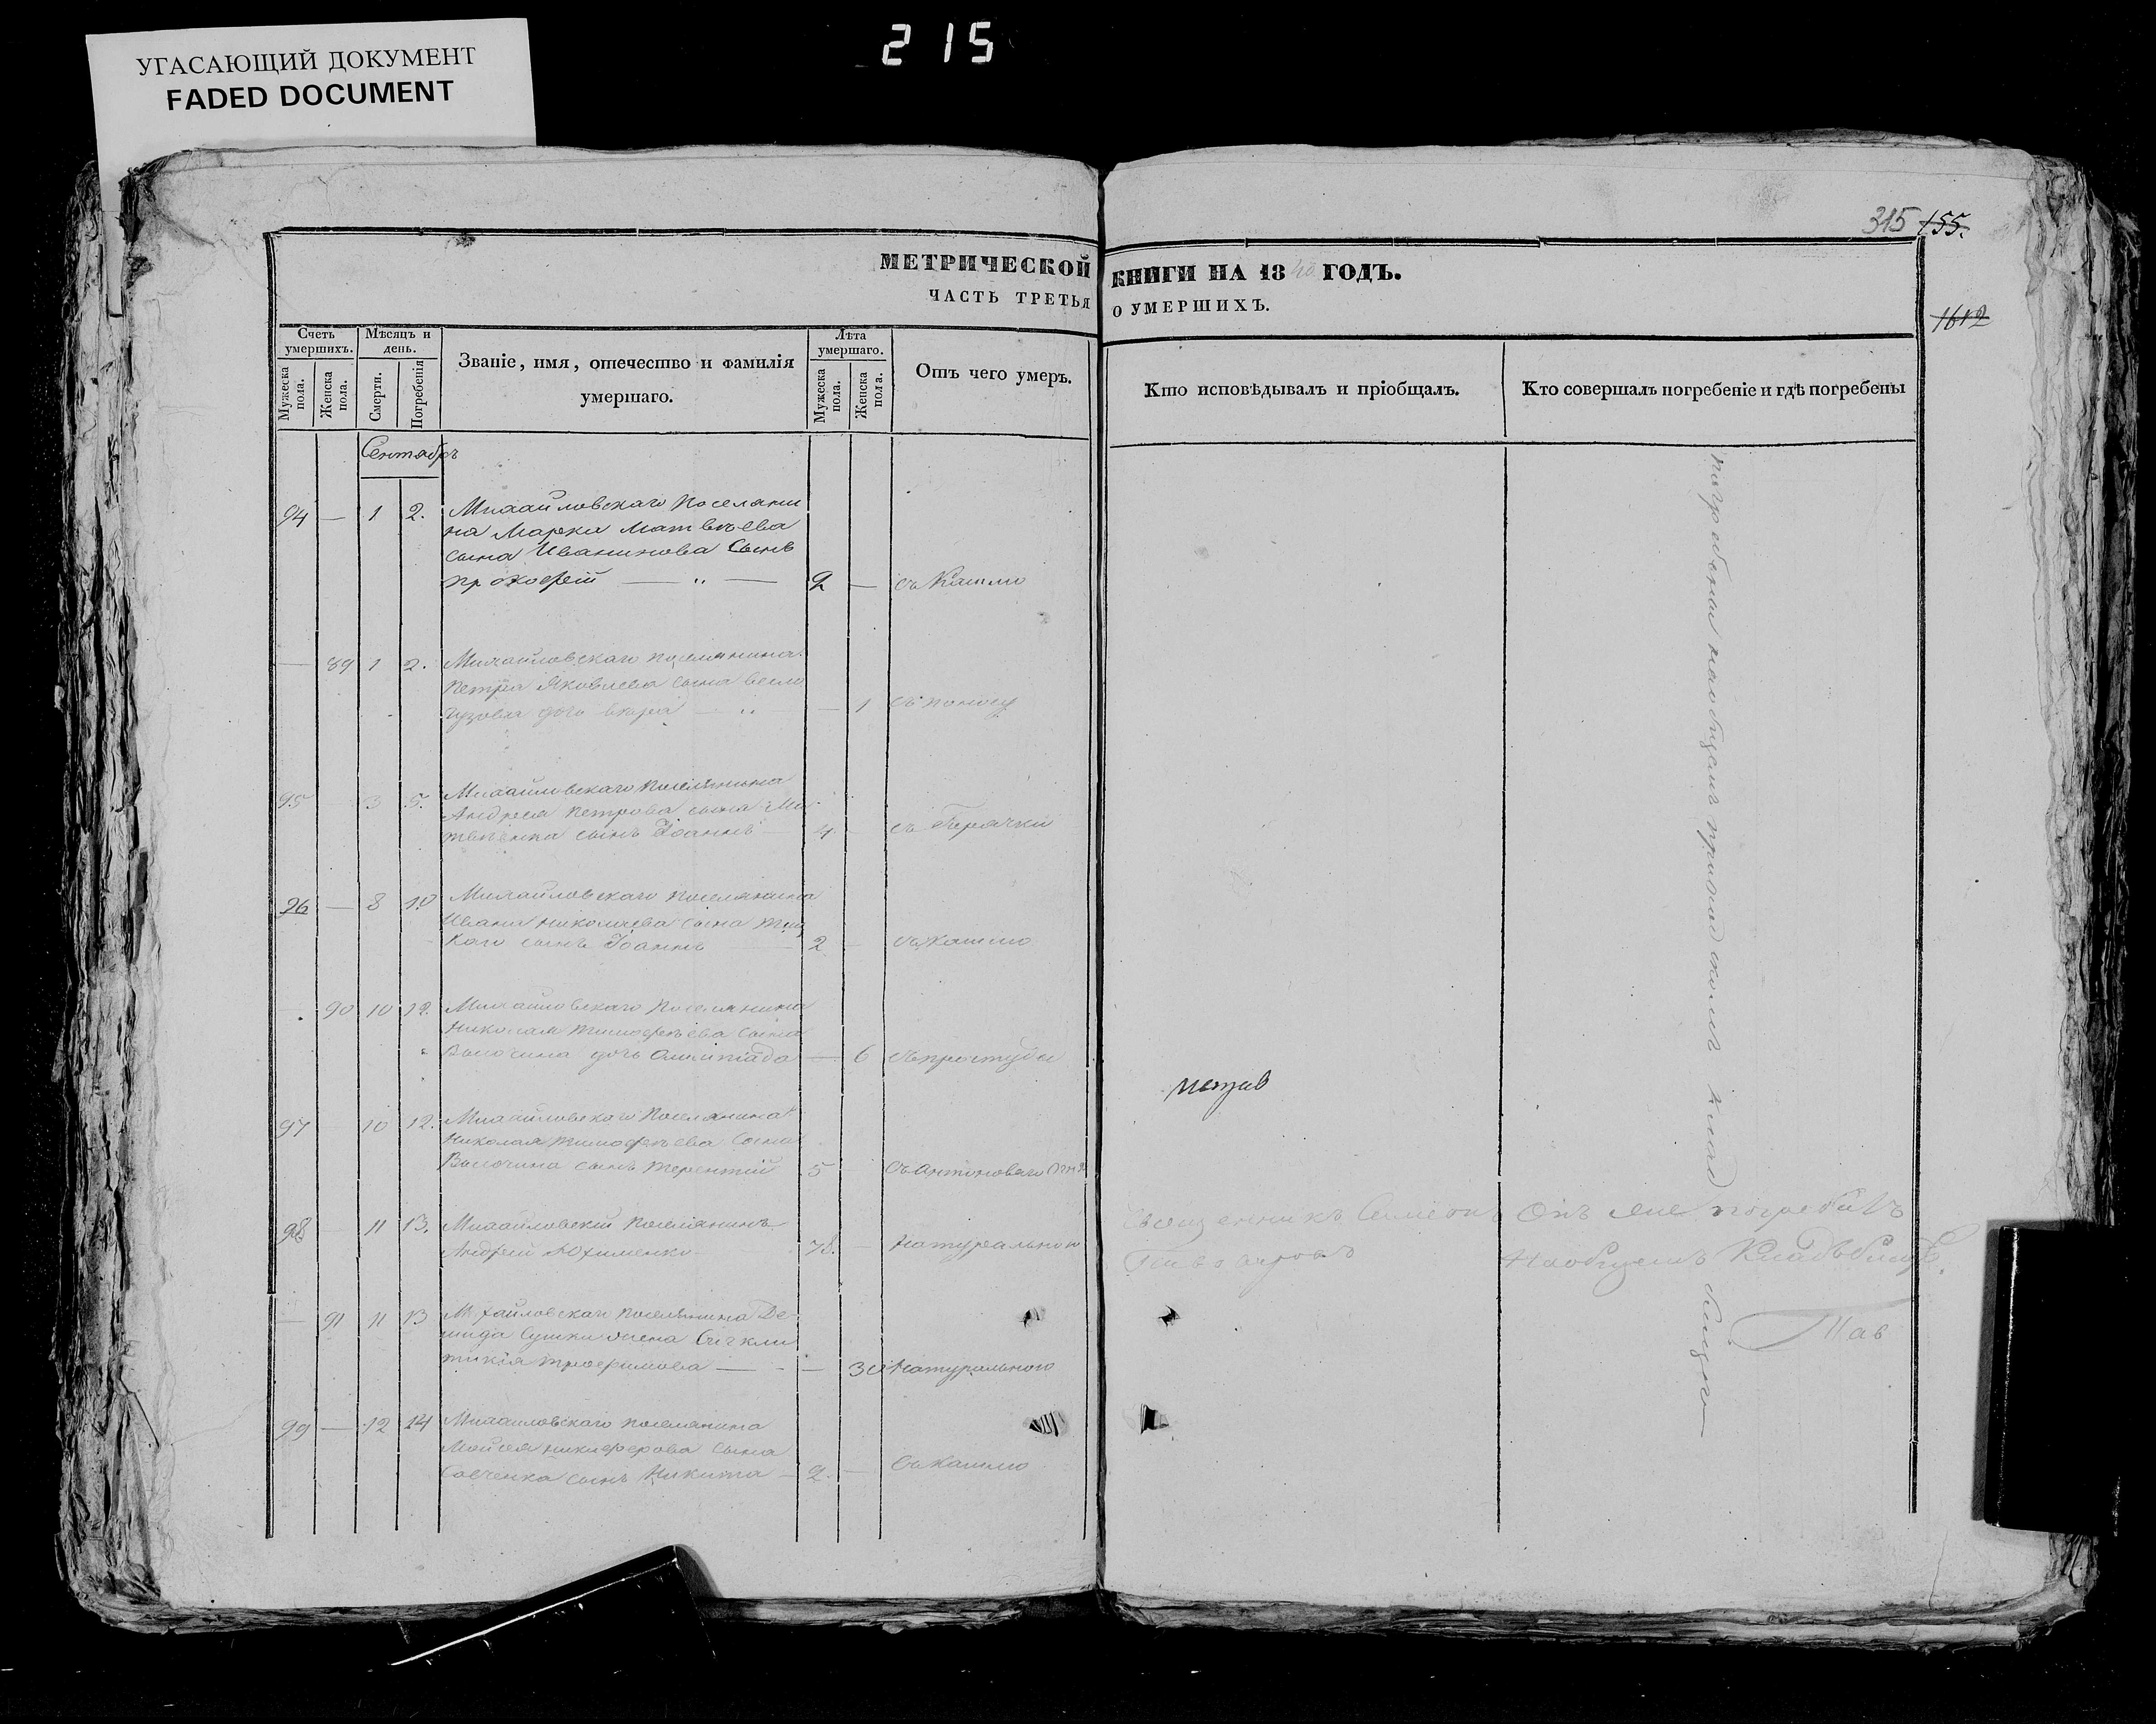 УГАСАЮЩИЙ ДОКУМЕНТ
FADED DOCUMENT
215
315 155.
1612
МЕТРИЧЕСКОЙ КНИГИ НА 1840 ГОДЪ.
ЧАСТЬ ТРЕТЬЯ О УМЕРШИХЪ.
Счетъ умершихъ.
Мужеска пола.
Женска пола.
Мѣсяцъ и день.
Смерти.
Погребенія
Званіе, имя, отечество и фамилія умершаго.
Лѣта умершаго.
Мужеска пола.
Женска пола.
Отъ чего умеръ.
Кто исповѣдывалъ и пріобщалъ.
Кто совершалъ погребеніе и гдѣ погребены
Сентябръ
94 — 1 2. Михайловскаго поселяни
на Марка Матвѣева
сына Иванинова сынъ
Прокофій — „ — 2 — съ Кашлю
— 89 1 2. Михайловскаго поселянина
Петра Яковлева сына
дочь — „ — 1 съ поносу
95 3 5. Михайловскаго поселянина
Андрея Петрова сына Ма
твѣенка сынъ Іоаннъ 4 съ Горячки
96 — 8 10 Михайловскаго поселянина
Ивана Николаева сына
сынъ Іоаннъ 2 — съ кашлю
90 10 12. Михайловскаго поселянина
Николая Тимофѣева сына
Высочина дочь Олимпіада — 6 съ простуды
97 10 12. Михайловскаго поселянина
Николая Тимофѣева сына
Высочина сынъ Терентій 5 съ антоноваго
98 11 13. Михайловскій поселянинъ
Андрей Юхименко 78. — Натуральною
Священникъ Симеонъ
Онъ же погребалъ
на общемъ Кладъбищѣ.
— 91 11 13 Михайловскаго поселянина Де-
мида Сушки жена Сигкли
тикія Трофимова — — 30 Натурального
99 — 12 14 Михайловскаго поселянина
Мойсея Никифорова сына
Савченка сынъ Никита — 2. — съ кашлю
погребены на общемъ приходскомъ кладбищѣ